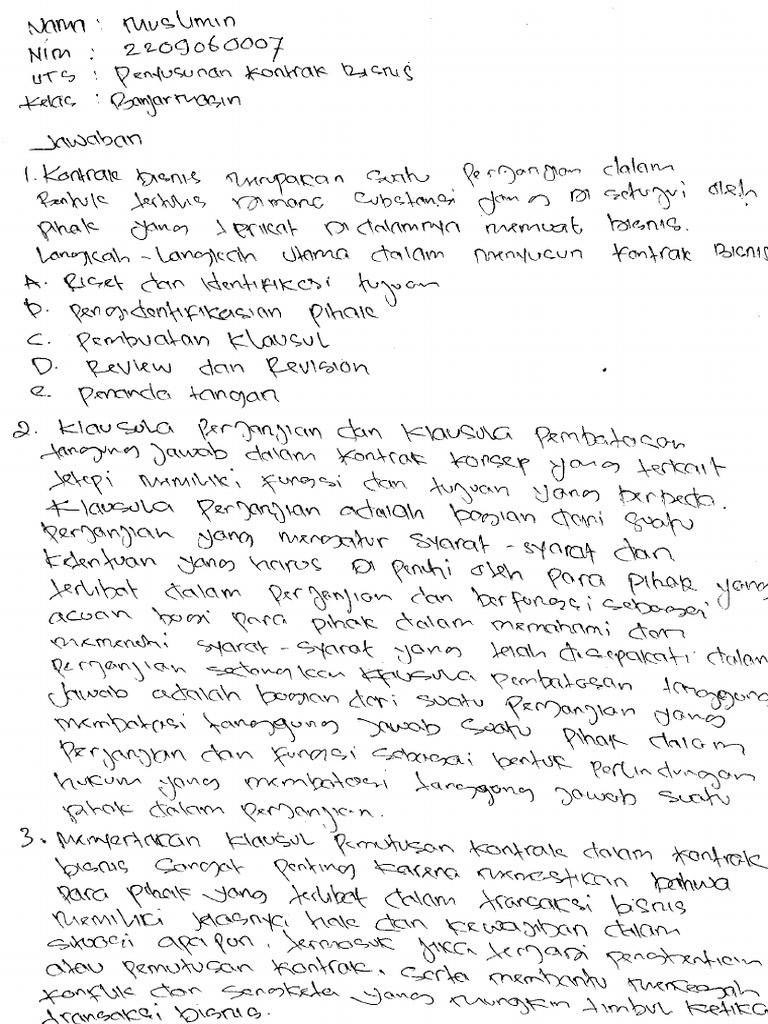 Nama : Muslimin
Nim : 2209060007
UTS : Penyusunan Kontrak Bisnis
Kelas : Banjarmasin
Jawaban
1. Kontrak bisnis merupakan suatu Perjanjian dalam
Bentuk tertulis dimana substansi yang Di setujui oleh
pihak yang terikat Di dalamnya memuat bisnis.
Langkah-Langkah utama dalam menyusun kontrak Bisnis
A. Riset dan Identifikasi tujuan
b. pengidentifikasian pihak
C. Pembuatan Klausul
D. Review dan Revision
e. Penanda tangan
2. Klausula Perjanjian dan Klausula Pembatasan
tanggung Jawab dalam kontrak konsep yang terkait
tetapi memiliki fungsi dan tujuan yang berbeda.
Klausula Perjanjian adalah bagian dari suatu
perjanjian yang mengatur syarat-syarat dan
ketentuan yang harus Di penuhi oleh para pihak yang
terlibat dalam perjanjian dan berfungsi sebagai
acuan bagi para pihak dalam memahami dan
memenuhi syarat-syarat yang telah disepakati dalam
perjanjian sedangkan klausula pembatasan tanggung
Jawab adalah bagian dari suatu perjanjian yang
membatasi tanggung Jawab suatu pihak dalam
Perjanjian dan fungsi sebagai bentuk perlindungan
hukum yang membatasi tanggung Jawab suatu
pihak dalam perjanjian.
3. Menyertakan klausul pemutusan kontrak dalam kontrak
bisnis sangat penting karena memastikan bahwa
para pihak yang terlibat dalam transaksi bisnis
memiliki jelasnya hak dan kewajiban dalam
situasi apapun, termasuk jika terjadi penghentian
atau pemutusan kontrak. serta membantu mencegah
konflik dan sengketa yang mungkin timbul ketika
transaksi bisnis.